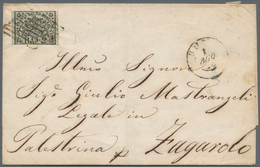 Illmo Signor
Sigr Giulio Mastrangeli
Legale in
Palestrina p Zugarolo